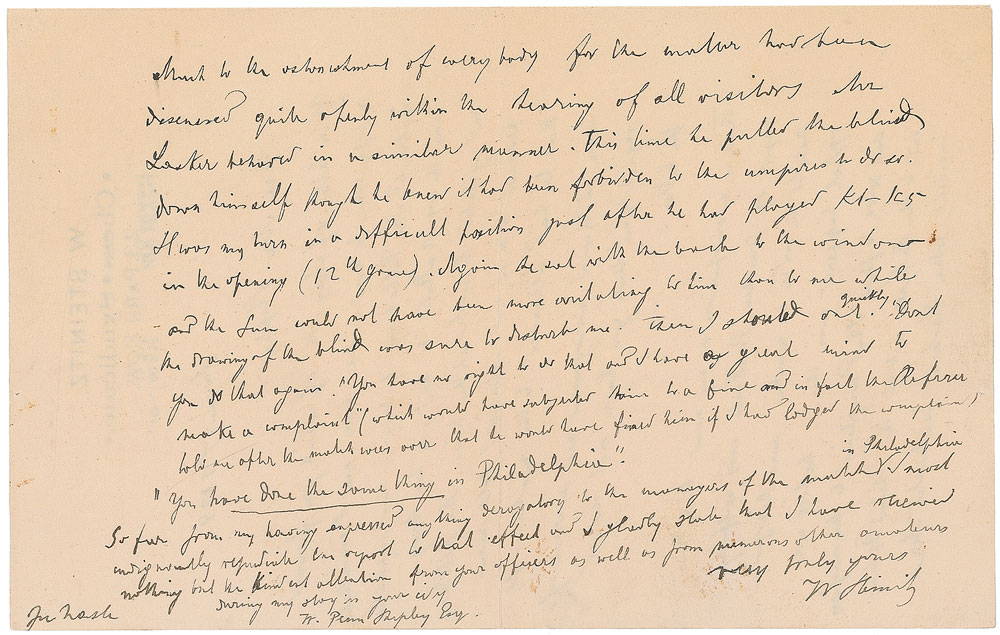 Much to the astonishment of everybody for the matter had been
discussed quite openly within the hearing of all visitors Mr
Lasker behaved in a similar manner. This time he pulled the blind
down himself though he knew it had been forbidden to the umpires to do so.
It was my turn in a difficult position just after he had played Kt-K5
in the opening (12th game). Again he sat with the back to the window
- and the sun could not have been more irritating to him than to me while
the drawing of the blind was sure to disturb me. Then I shouted out quickly. "Dont
you do that again. "You have no right to do that and I have a great mind to
make a complaint" (which would have subjected him to a fine and in fact the Referee
told me after the match was over that he would have fined him if I had lodged the complaint)
"You have done the same thing in Philadelphia".
So far from my having expressed anything derogatory to the managers of the match in Philadelphia I most
indignantly repudiate the report to that effect and I gladly state that I have received
nothing but the kindest attention from your officers as well as from numerous other amateurs
during my stay in your city
very truly yours.
W Steinitz
W. Penn Shipley Esq.
In haste
W. STEINITZ